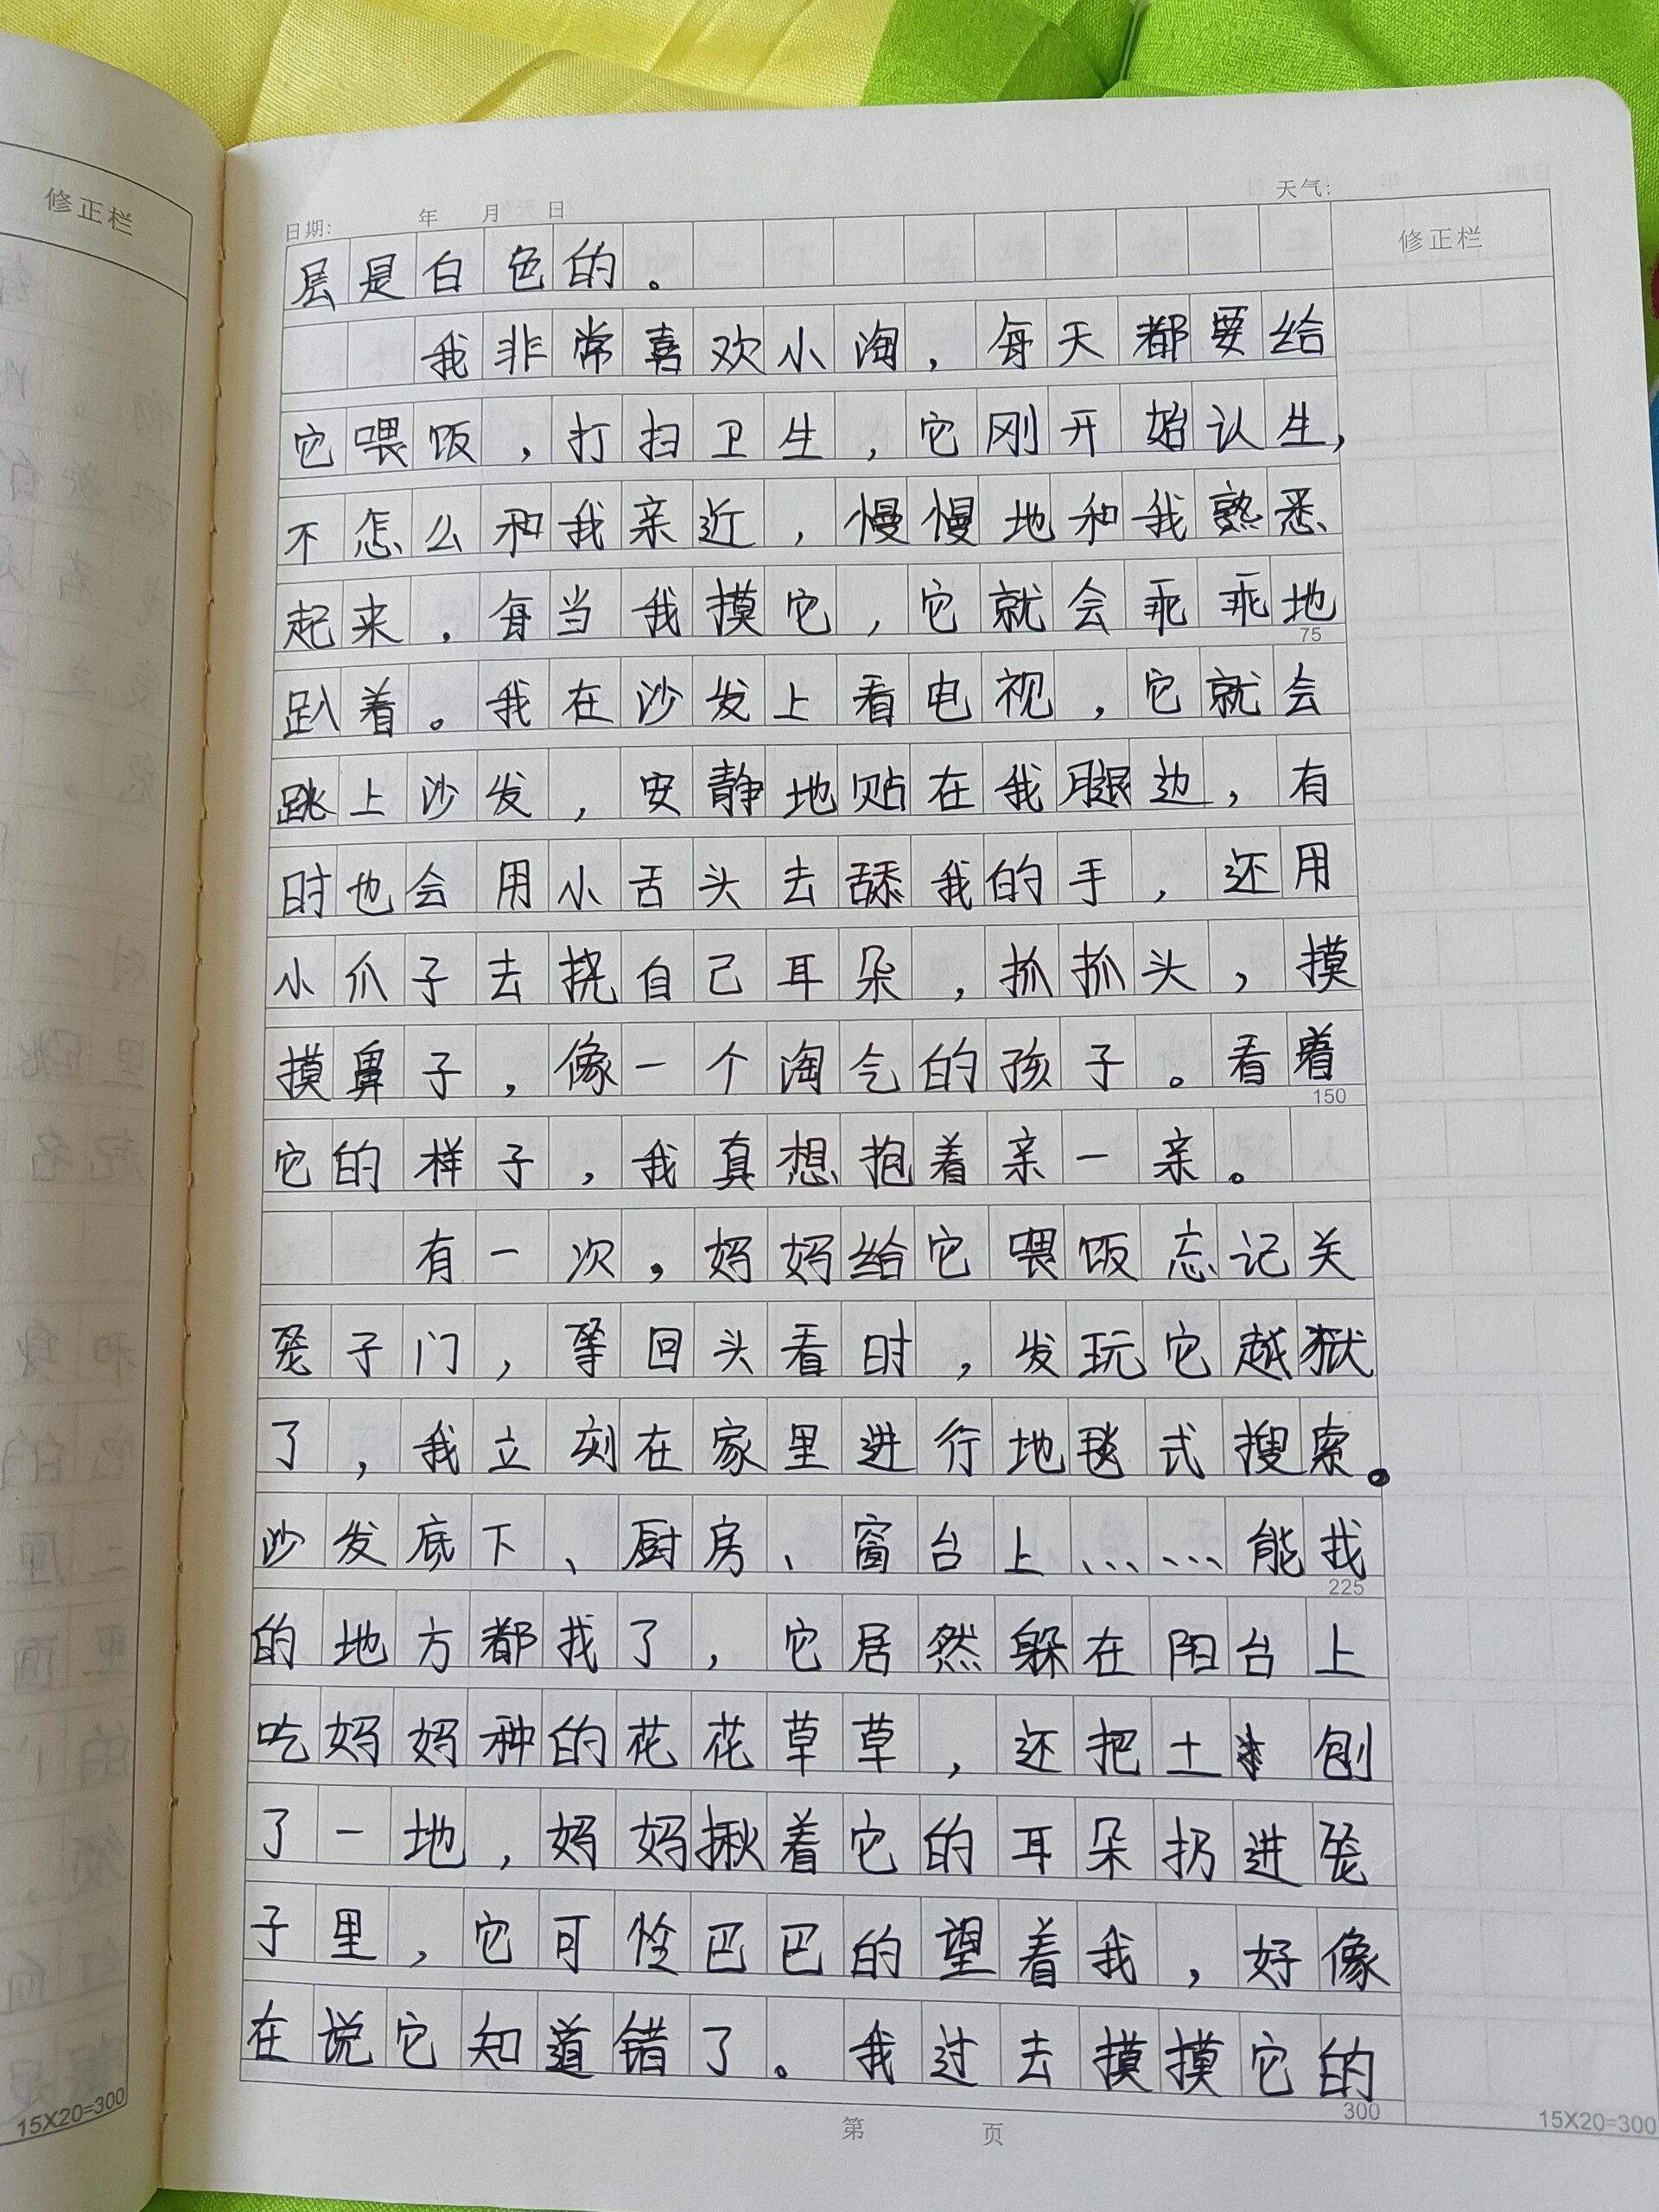 修正栏
日期: 年 月 日 天气:
修正栏
层是白色的。
我非常喜欢小淘，每天都要给
它喂饭，打扫卫生，它刚开始认生，
不怎么和我亲近，慢慢地和我熟悉
起来，每当我摸它，它就会乖乖地
75
趴着。我在沙发上看电视，它就会
跳上沙发，安静地贴在我腿边，有
时也会用小舌头去舔我的手，还用
小爪子去挠自己耳朵，抓抓头，摸
摸鼻子，像一个淘气的孩子。看着
150
它的样子，我真想抱着亲一亲。
有一次，妈妈给它喂饭忘记关
笼子门，等回头看时，发玩它越狱
了，我立刻在家里进行地毯式搜索。
沙发底下、厨房、窗台上……能找
225
的地方都找了，它居然躲在阳台上
吃妈妈种的花花草草，还把土刨
了一地，妈妈揪着它的耳朵扔进笼
子里，它可怜巴巴的望着我，好像
在说它知道错了。我过去摸摸它的
300
第 页
15X20=300
15X20=300